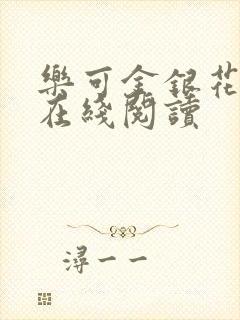 樂可金銀花
在綫閱讀
潯一一